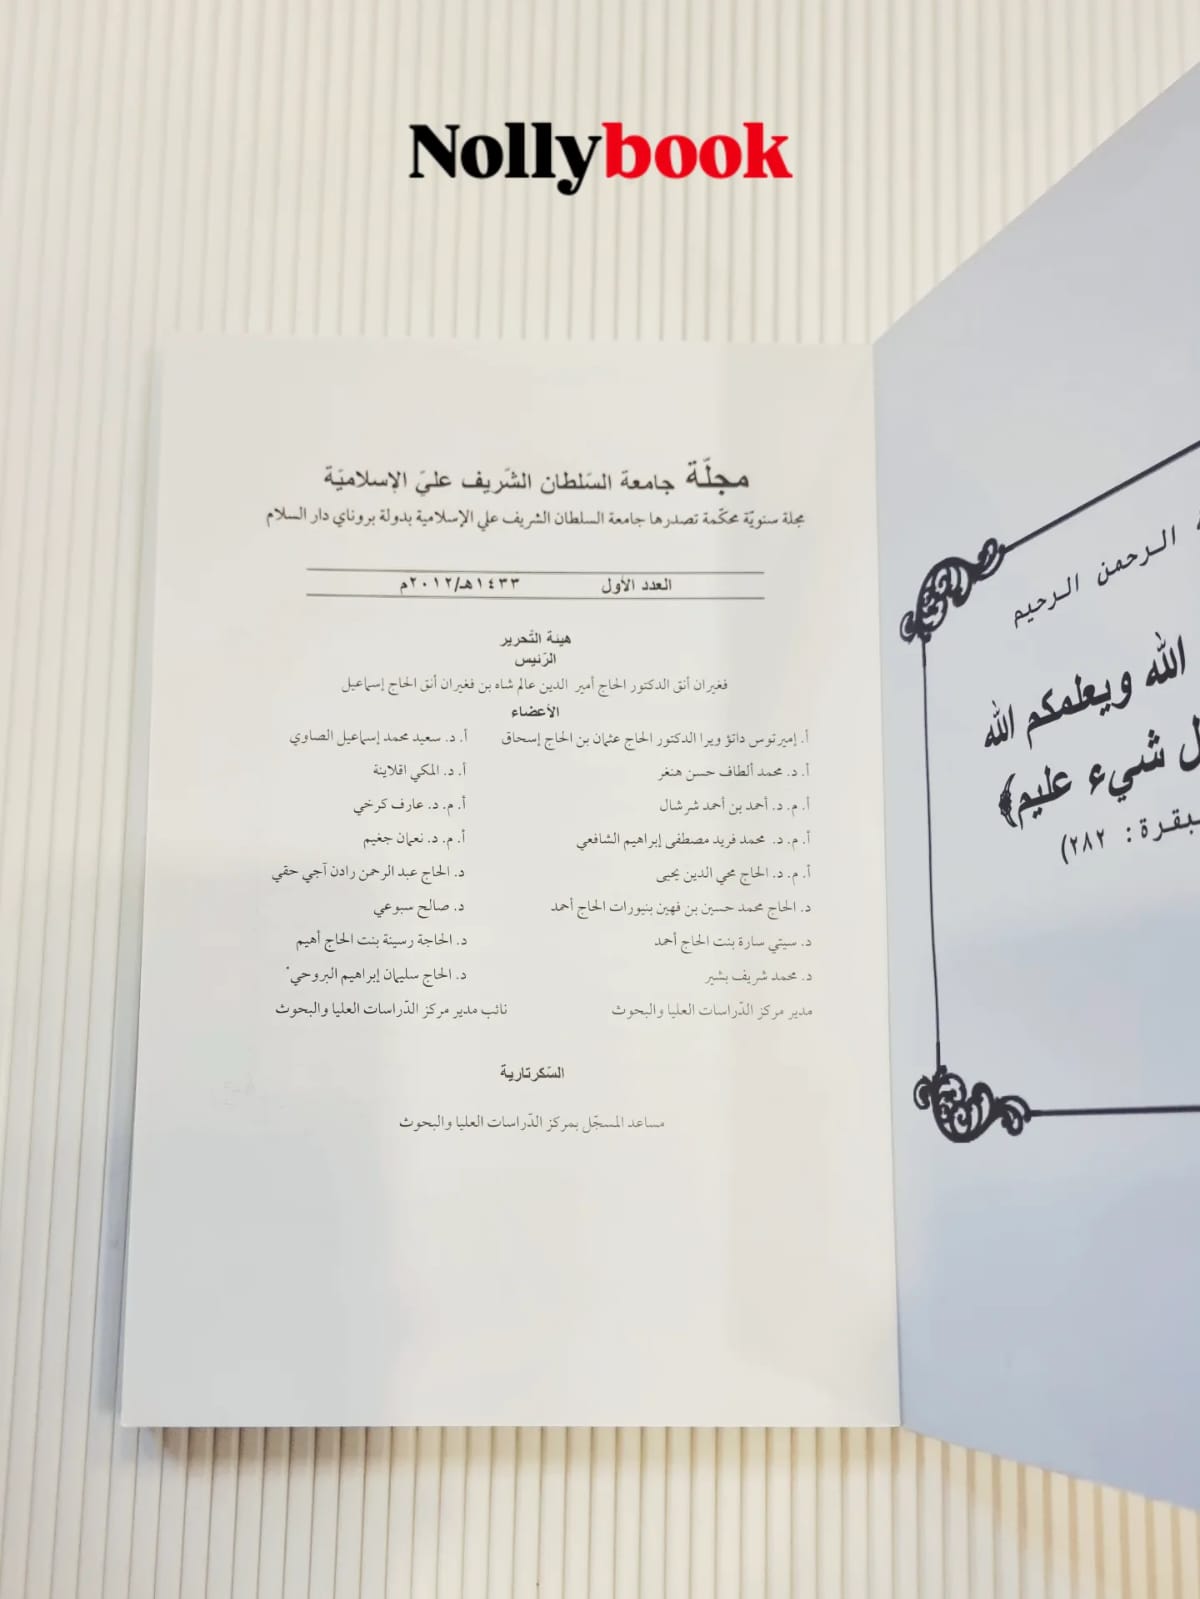 Nollybook
مجلّة جامعة السّلطان الشّريف عليّ الإسلاميّة
مجلة سنويّة محكّمة تصدرها جامعة السلطان الشريف علي الإسلامية بدولة بروناي دار السلام
العدد الأول ١٤٣٣هـ/٢٠١٢م
هيئة التّحرير
الرّئيس
فغيران أنق الدكتور الحاج أمير الدين عالم شاه بن فغيران أنق الحاج إسماعيل
الأعضاء
أ. إميرتوس داتؤ ويرا الدكتور الحاج عثمان بن الحاج إسحاق أ. د. سعيد محمد إسماعيل الصاوي
أ. د. محمد ألطاف حسن هنغر أ. د. المكي اقلاينة
أ. م. د. أحمد بن أحمد شرشال أ. م. د. عارف كرخي
أ. م. د. محمد فريد مصطفى إبراهيم الشافعي أ. م. د. نعمان جغيم
أ. م. د. الحاج محي الدين يحيى د. الحاج عبد الرحمن رادن آجي حقي
د. الحاج محمد حسين بن فهين بنيورات الحاج أحمد د. صالح سبوعي
د. سيتي سارة بنت الحاج أحمد د. الحاجة رسينة بنت الحاج أهيم
د. محمد شريف بشير د. الحاج سليمان إبراهيم البروحي
مدير مركز الدّراسات العليا والبحوث نائب مدير مركز الدّراسات العليا والبحوث
السّكرتارية
مساعد المسجّل بمركز الدّراسات العليا والبحوث
الرحمن الرحيم
الله ويعلمكم الله
شيء عليم﴾
٢٨٢)